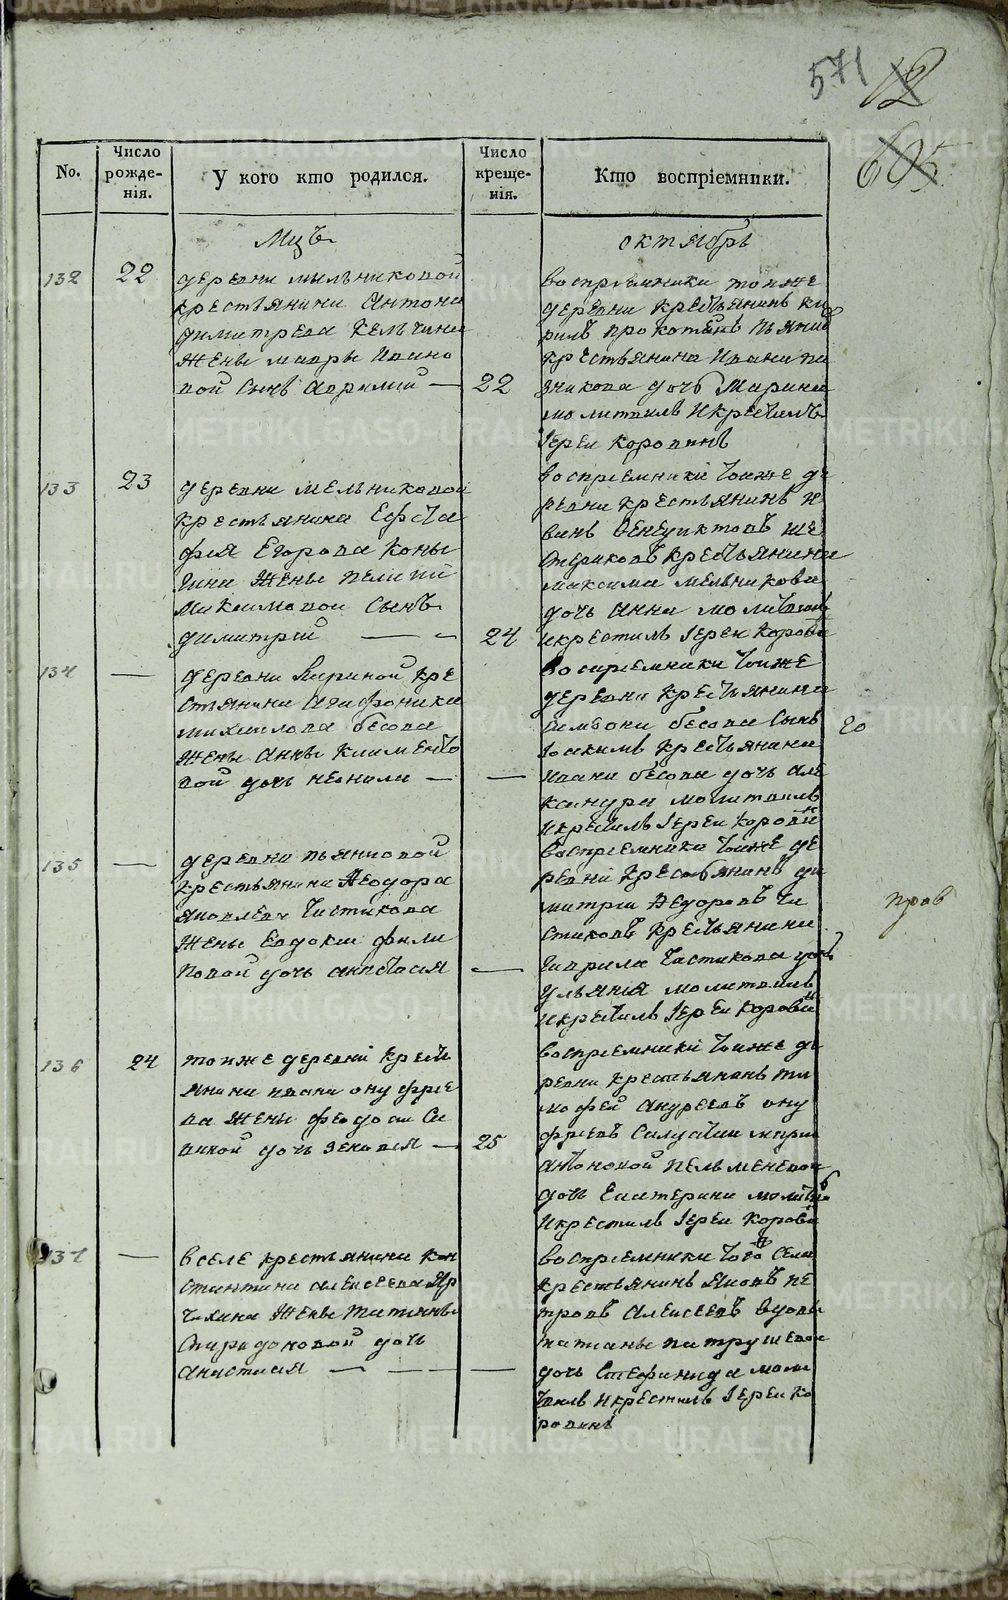 571 12
605
No.
Число рожденія.
У кого кто родился.
Число крещенія.
Кто воспріемники.
Мцъ октябрь
132 22
деревни мыльниковой
крестьянина Антона
димитрева Кельчина
жены мавры Ивано
вой сынъ Аврамий — 22
воспріемники тоиже
деревни крестьянинъ ки
рилъ
крестьянина Ивана
дочь Марина
молитвилъ и крестилъ
Іереи коровинъ
133 23
деревни мельниковой
крестьянина Еѵста
фия Егорова Коны
гина жены пелагии
Максимовой сынъ
димитрій — — 24
воспріемники тоиже де
ревни крестьянинъ и
ванъ
стериковъ крестьянина
максима мельникова
дочь анна молитвилъ
и крестилъ Іереи Корови
134 —
деревни Кре
стьянина Агафоника
михаилова бесова
жены анны Климента
вой дочь неонила — —
воспріемники тоиже
деревни крестьянина
симеона бесова сынъ
Іоакимъ крестьянина
ивана бесова дочь але
ксандра молитвилъ
и крестилъ Іереи корови
20
135 —
деревни пьянковой
крестьянина Ѳеодора
яковлева Чистикова
жены Евдокии фили
повой дочь анастасия —
воспріемники тоиже де
ревни крестьянинъ ди
митрии Ѳедоровъ чи
стиковъ крестьянина
гаврила чистикова дочь
ульяния молитвилъ
и крестилъ Іереи корови
прав
136 24
тоиже деревни крестъ
янина ивана онуфрие
ва жены феодосии са
виной дочь зеновия — 25
воспріемники тоиже де
ревни крестьянинъ ти
мофей андреевъ ону
фриевъ
антоновой пельменевой
дочь Екатерина молитви
и крестилъ Іереи корови
137 —
в селе крестьянина кон
стантина алексеева
жены татианы
Спиридоновой дочь
анастасия — — —
воспріемники того села
крестьянинъ яковъ пе
тровъ алексеевъ вдовы
татианы патрушевой
дочь Стефанида моли
твилъ и крестилъ Іереи ко
ровинъ
METRIKI.GASO-URAL.RU